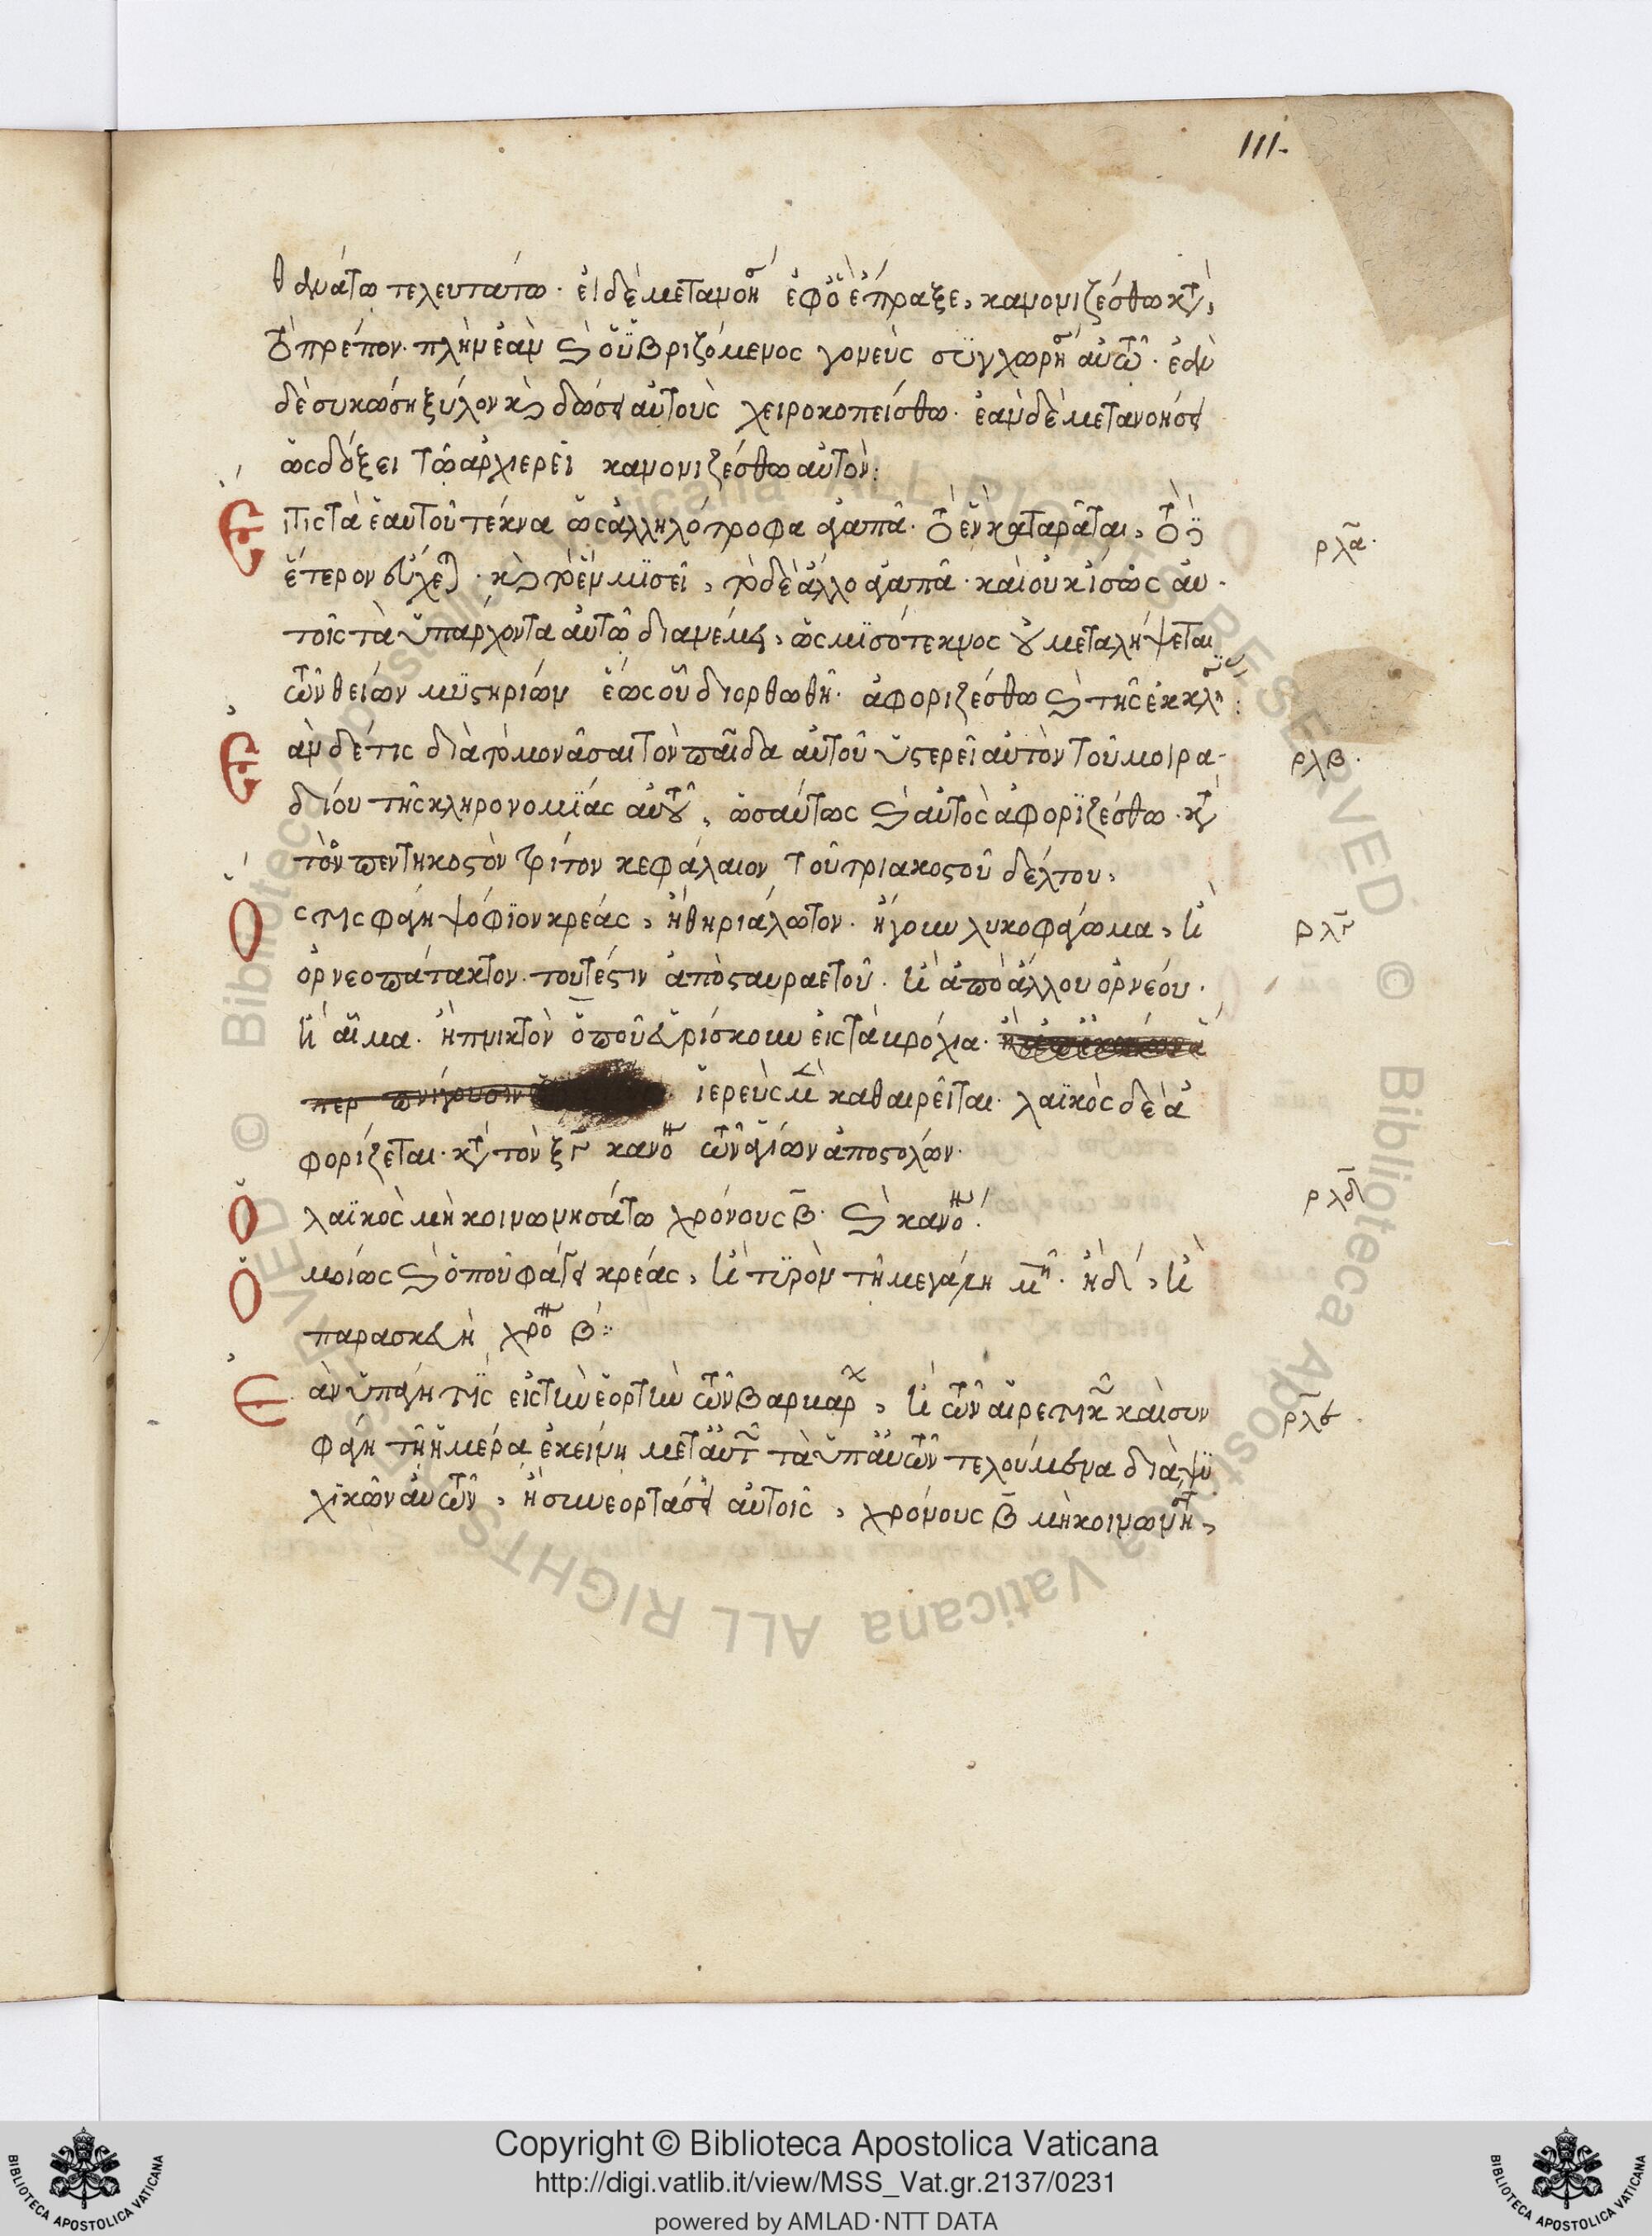 111.
θανάτω τελευτάτω· εἰ δὲ μετανοή ἐφὅ ἔπραξε, κανονιζέσθω κατὰ
τὸ πρέπον· πλὴν ἐὰν καὶ ὁ ὑβριζόμενος γονεὺς συγχωρῆ αὐτῶ· ἐὰν
δὲ συκώση ξύλον καὶ δώσει αὐτοὺς χειροκοπείσθω· ἐὰν δὲ μετανοήσει
ὡς δόξει τῶ ἀρχιερεῖ κανονιζέσθω αὐτόν:
Εἴτις τὰ ἑαυτοῦ τέκνα ὡς ἀλληλότροφα ἀγαπᾶ· τὸ ἓν καταρᾶται, τὸ δὲ
ἕτερον εὔχεται· καὶ τὸ ἓν μισεῖ, τὸ δὲ ἄλλο ἀγαπᾶ· καὶ οὐκ ἴσως αὐ-
τοῖς τὰ ὑπάρχοντα αὐτῶ διανέμει, ὡς μισότεκνος οὐ μεταλήψεται
τῶν θείων μυστηρίων ἕως οὗ διορθωθῆ· ἀφοριζέσθω καὶ τῆς ἐκκλη:
ρλα·
Ἐὰν δέ τις διὰ τὸ μονᾶσαι τὸν παῖδα αὐτοῦ ὑστερεῖ αὐτὸν τοῦ μοιρα-
δίου τῆς κληρονομίας αὐτοῦ, ὡσαύτως καὶ αὐτὸς ἀφοριζέσθω· κατὰ
τὸν πεντηκοστὸν τρίτον κεφάλαιον τοῦ τριακοστοῦ δέλτου,
ρλβ·
Ὅστις φάγη ψόφιον κρέας, ἢ θηριάλωτον· ἤγουν λυκοφάγωμα, ἢ
ὀρνεοπάτακτον· τουτέστιν ἀπὸ σταυραετοῦ· ἢ ἀπὸ ἄλλου ὀρνέου·
ἢ αἷμα· ἢ πνικτὸν ὁποῦ εὑρίσκουν εἰς τὰ βρόχια·
περ πνίγουσιν ἱερεὺς μὲν καθαιρεῖται· λαϊκὸς δὲ ἀ
φορίζεται· κατὰ τὸν ξγ κανό τῶν ἁγίων ἀποστόλων·
ρλγ
Ὁ λαϊκὸς μὴ κοινωνησάτω χρόνους β· καὶ κανο·
ρλδ
Ὁμοίως καὶ ὁποῦ φάγει κρέας, ἢ τυρὸν τῆ μεγάλη μ· ἢ δ, ἢ
παρασκευὴ χρο β:
Ἐὰν ὑπάγη τὶς εἰς τὴν ἑορτὴν τῶν βαρβαρ, ἢ τῶν αἱρετικ καὶ συν
φάγη τῆ ἡμέρα ἐκείνη μετ αὐτ τὰ ὑπ αὐτῶν τελούμενα διὰ ψυ
χικῶν αὐτῶν, ἢ συνεορτάσει αὐτοῖς, χρόνους β μὴ κοινωνη,
ρλε·
Copyright © Biblioteca Apostolica Vaticana
http://digi.vatlib.it/view/MSS_Vat.gr.2137/0231
powered by AMLAD·NTT DATA
BIBLIOTECA APOSTOLICA VATICANA
BIBLIOTECA APOSTOLICA VATICANA
© Biblioteca Apostolica Vaticana ALL RIGHTS RESERVED
© Biblioteca Apostolica Vaticana ALL RIGHTS RESERVED